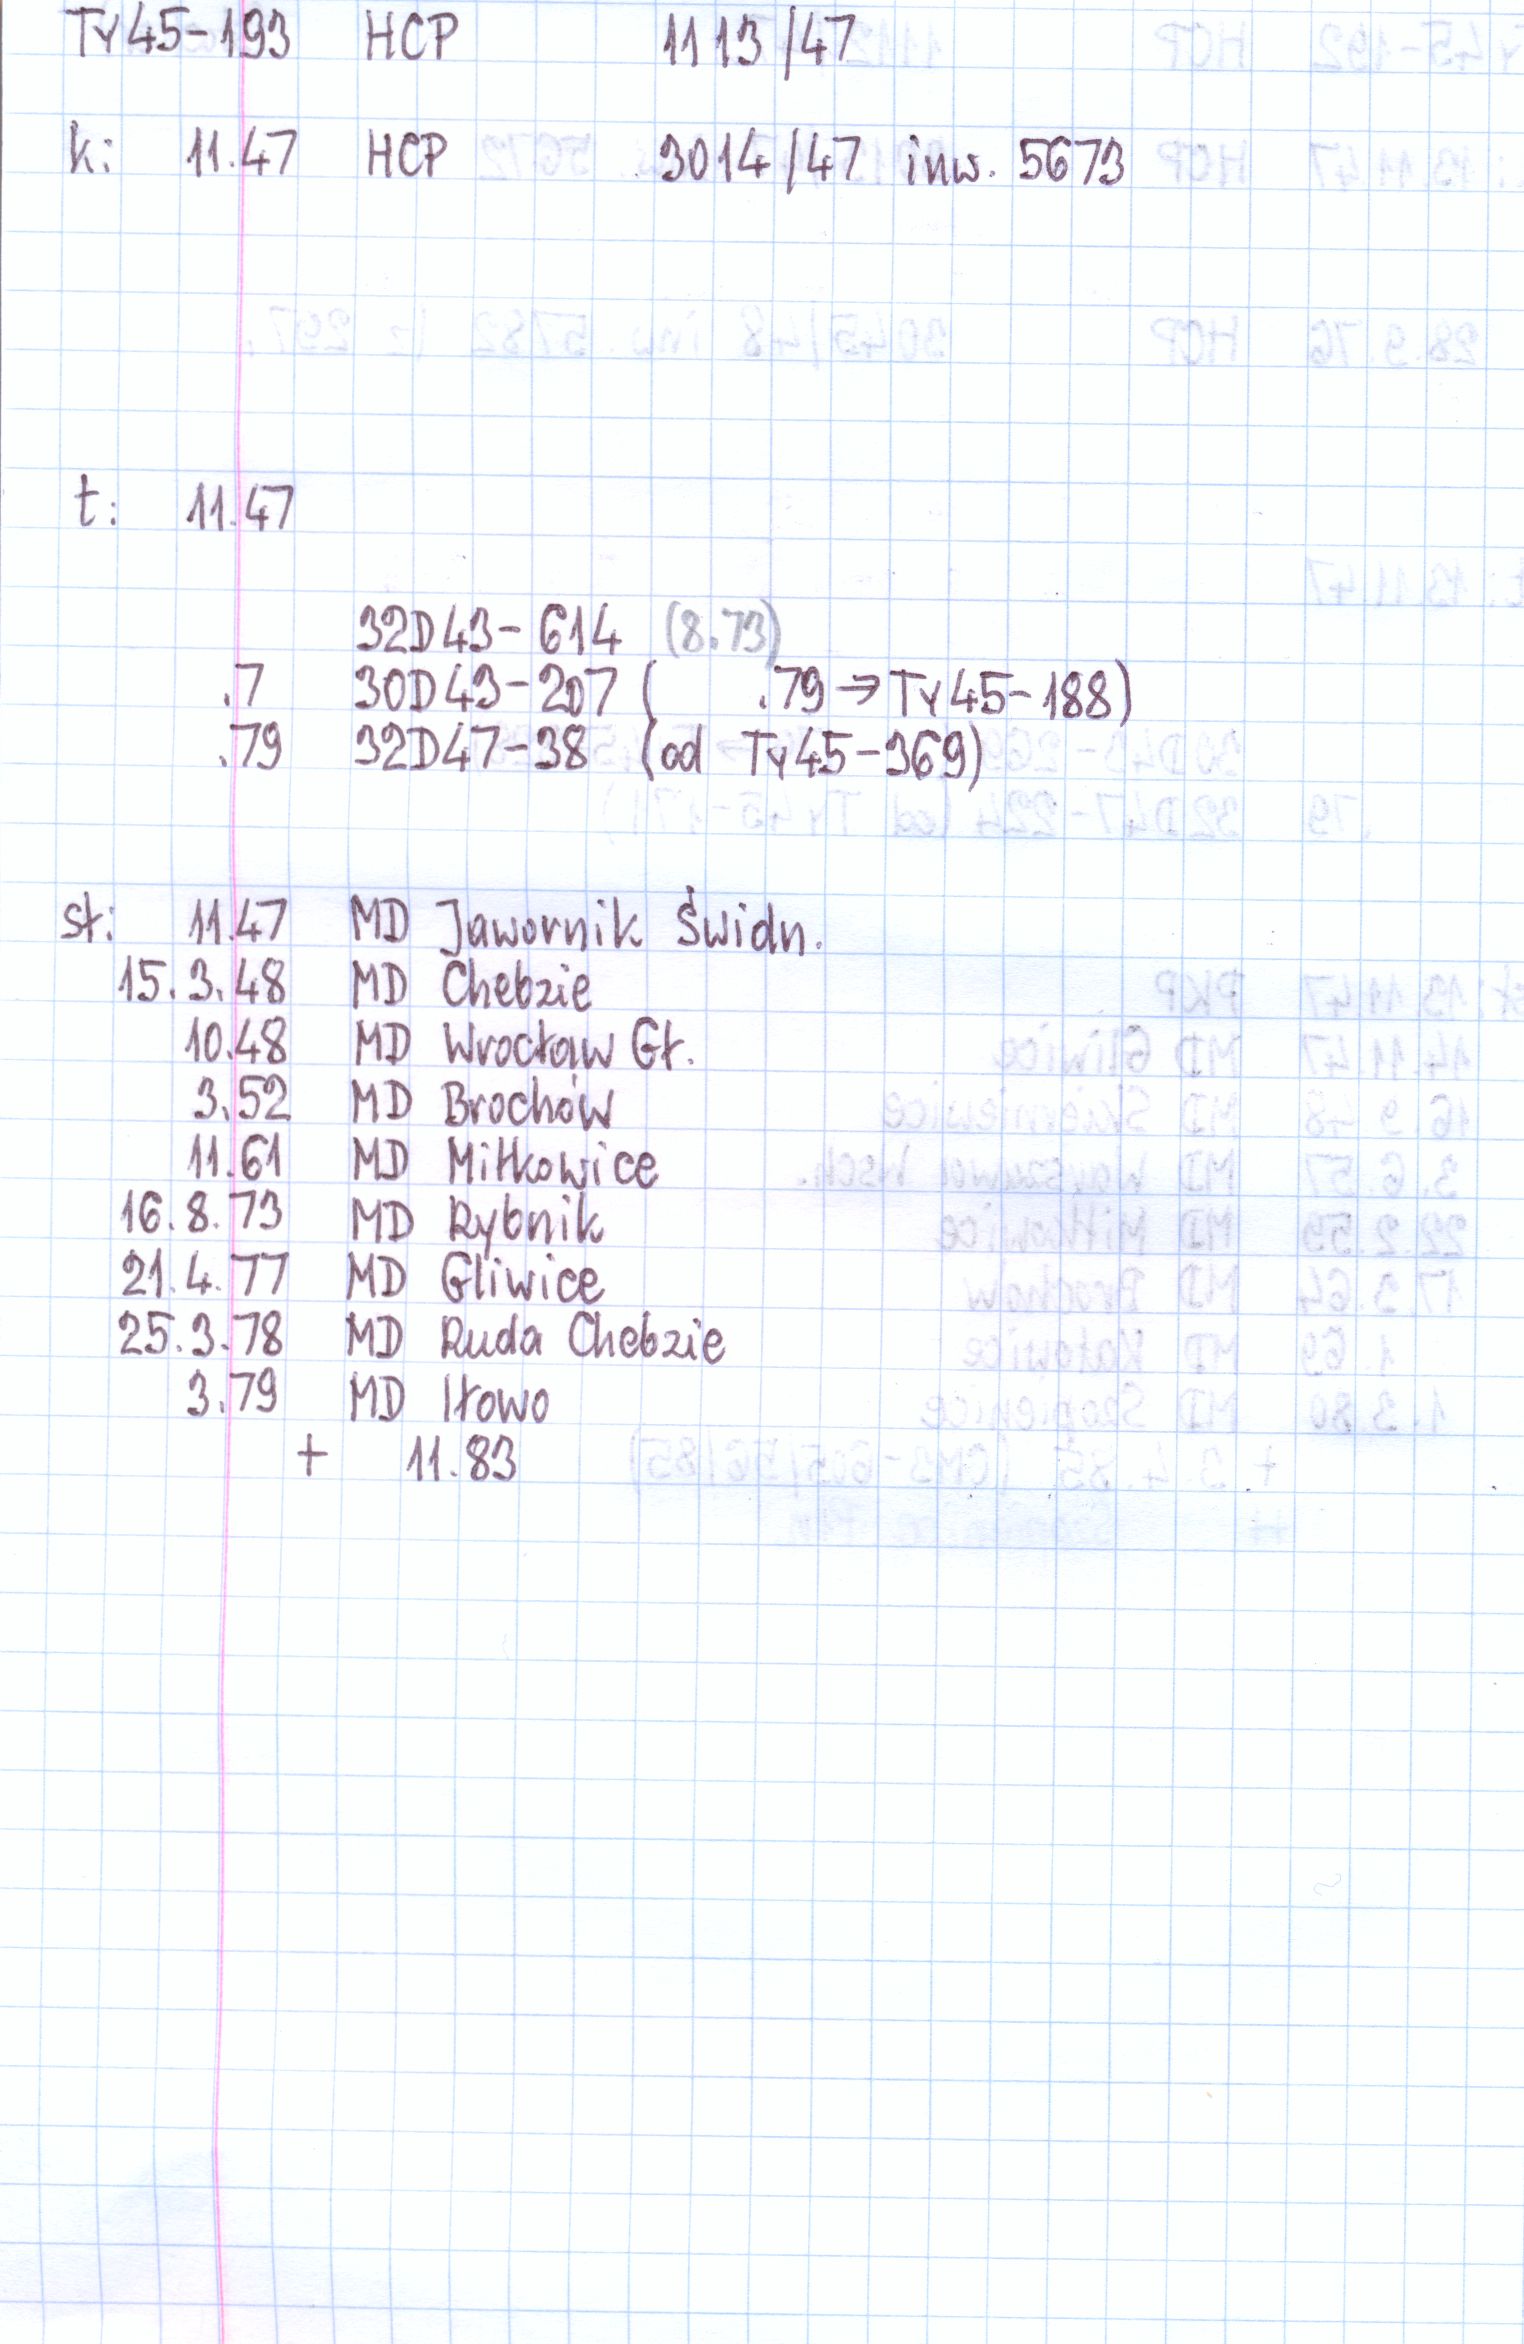 Ty45-193 HCP 1113/47
k: 11.47 HCP 3014/47 inw. 5673
t: 11.47
32D43-614 (8.73)
.7 30D43-207 ( .79 → Ty45-188)
.79 32D47-38 (od Ty45-369)
st: 11.47 MD Jawornik Świdn.
15.3.48 MD Chebzie
10.48 MD Wrocław Gł.
3.52 MD Brochów
11.61 MD Miłkowice
16.8.73 MD Rybnik
21.4.77 MD Gliwice
25.3.78 MD Ruda Chebzie
3.79 MD Iłowo
+ 11.83